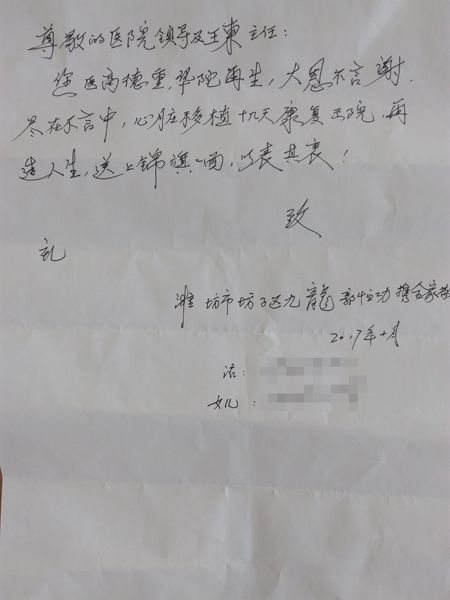 尊敬的医院领导及王東主任：
您医高德重，华陀再生，大恩不言谢，
尽在不言中，心脏移植十九天康复出院，再
造人生，送上锦旗一面，以表其衷！
致
礼
潍坊市坊子区九龍郭 功携全家敬
2017年十月
活：
女儿：